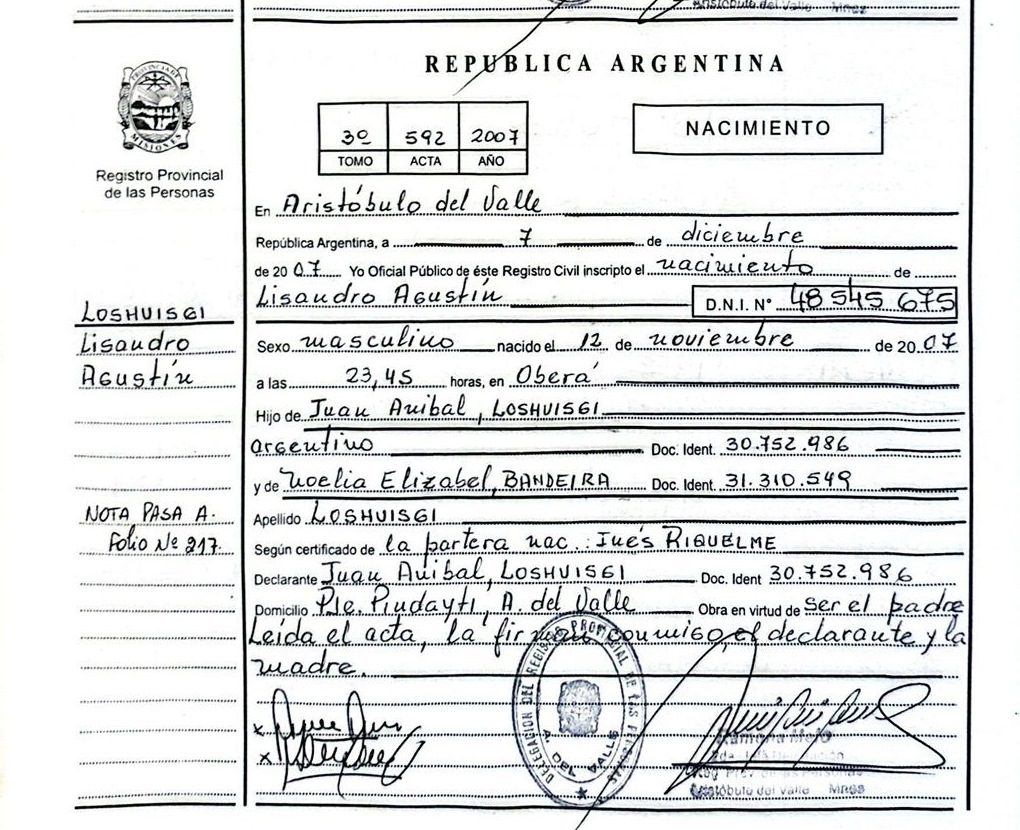 Aristóbulo del Valle Mnes
REPUBLICA ARGENTINA
PROVINCIA DE
MISIONES
Registro Provincial
de las Personas
3º 592 2007
TOMO ACTA AÑO
NACIMIENTO
En Aristóbulo del Valle
República Argentina, a 7 de diciembre
de 2007. Yo Oficial Público de éste Registro Civil inscripto el nacimiento de
Lisandro Agustín D.N.I. N° 48 545 675
LOSHUISGI
Lisandro
Agustín
Sexo masculino nacido el 12 de noviembre de 2007
a las 23,45 horas, en Oberá
Hijo de Juan Anibal, LOSHUISGI
argentino Doc. Ident. 30.752.986
y de Noelia Elizabel, BANDEIRA Doc. Ident. 31.310.549
NOTA PASA A.
Folio Nº 217.
Apellido LOSHUISGI
Según certificado de la partera nac.: Inés RIQUELME
Declarante Juan Anibal, LOSHUISGI Doc. Ident 30.752.986
Domicilio Pje. Pindaytí, A. del Valle Obra en virtud de ser el padre
Leída el acta, la firman conmigo, el declarante y la
madre.
DELEGACION DEL REGISTRO PROVINCIAL DE LAS PERSONAS
A. DEL VALLE
Ramona Melo
Reg. Prov. de las Personas
Aristóbulo del Valle Mnes